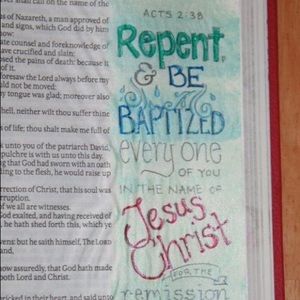 shall call on the name of the
us of Nazareth, a man approved of
and signs, which God did by him
now:
ate counsel and foreknowledge of
ave crucified and slain:
osed the pains of death: because it
of it.
foresaw the Lord always before my
ould not be moved:
y tongue was glad; moreover also
hell, neither wilt thou suffer thine
s of life; thou shalt make me full of
k unto you of the patriarch David,
epulchre is with us unto this day.
g that God had sworn with an oath
ding to the flesh, he would raise up
rrection of Christ, that his soul was
rruption.
of we all are witnesses.
God exalted, and having received of
, he hath shed forth this, which ye
vens: but he saith himself, The
now assuredly, that God hath made
both Lord and Christ.
pricked in their heart, and said unto
ACTS 2:38
Repent,
& BE
BAPTIZED
every one
OF YOU
IN THE NAME OF
Jesus
Christ
FOR THE
remission